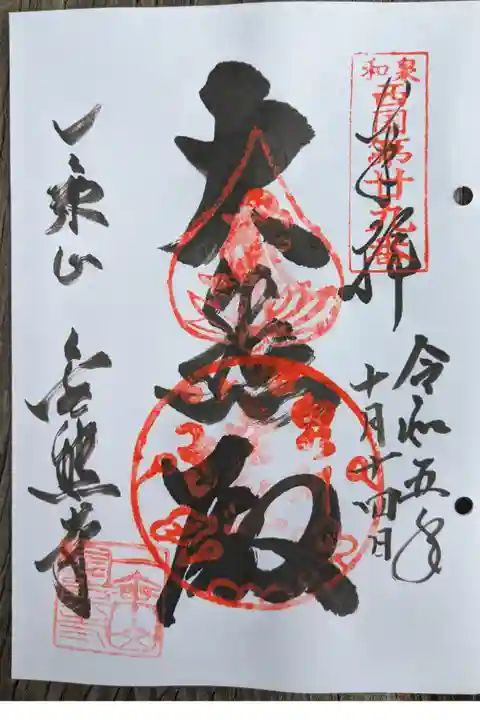 和泉
西国第廿九番
奉拝
令和五年
十月廿四日
大悲殿
一乗山 金熊寺